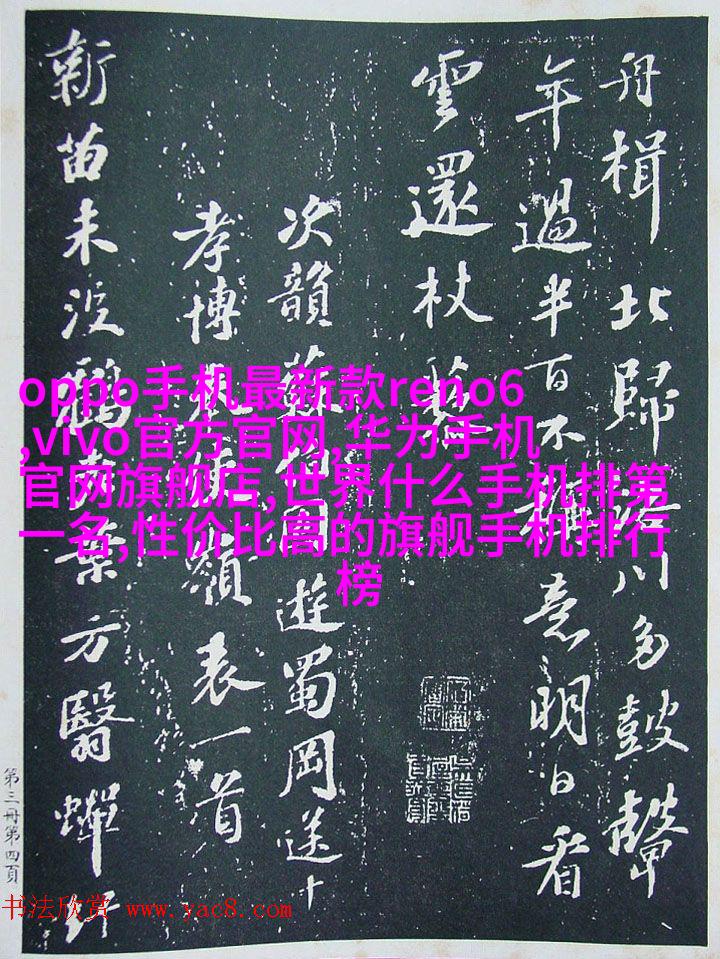 舟楫北歸川多鼓鼙
年過半百不稱意明日看
雲還杖藜
次韻蘇同遊蜀岡送
孝博使嶺表一首
新苗未没鶴老葉方翳蟬
第三冊第四頁
oppo手机最新款reno6
,vivo官方官网,华为手机
官网旗舰店,世界什么手机排第
一名,性价比高的旗舰手机排行
榜
书法欣赏 www.yac8.com